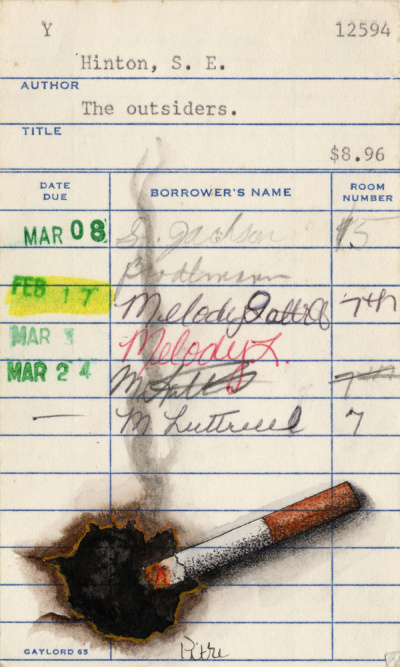 Y 12594
Hinton, S. E.
AUTHOR
The outsiders.
TITLE
$8.96
DATE DUE BORROWER'S NAME ROOM NUMBER
MAR 08 S. Jackson 15
FEB 17 Melody 7th
MAR 3 Melody L.
MAR 24 7th
— M Luttrell 7
GAYLORD 65